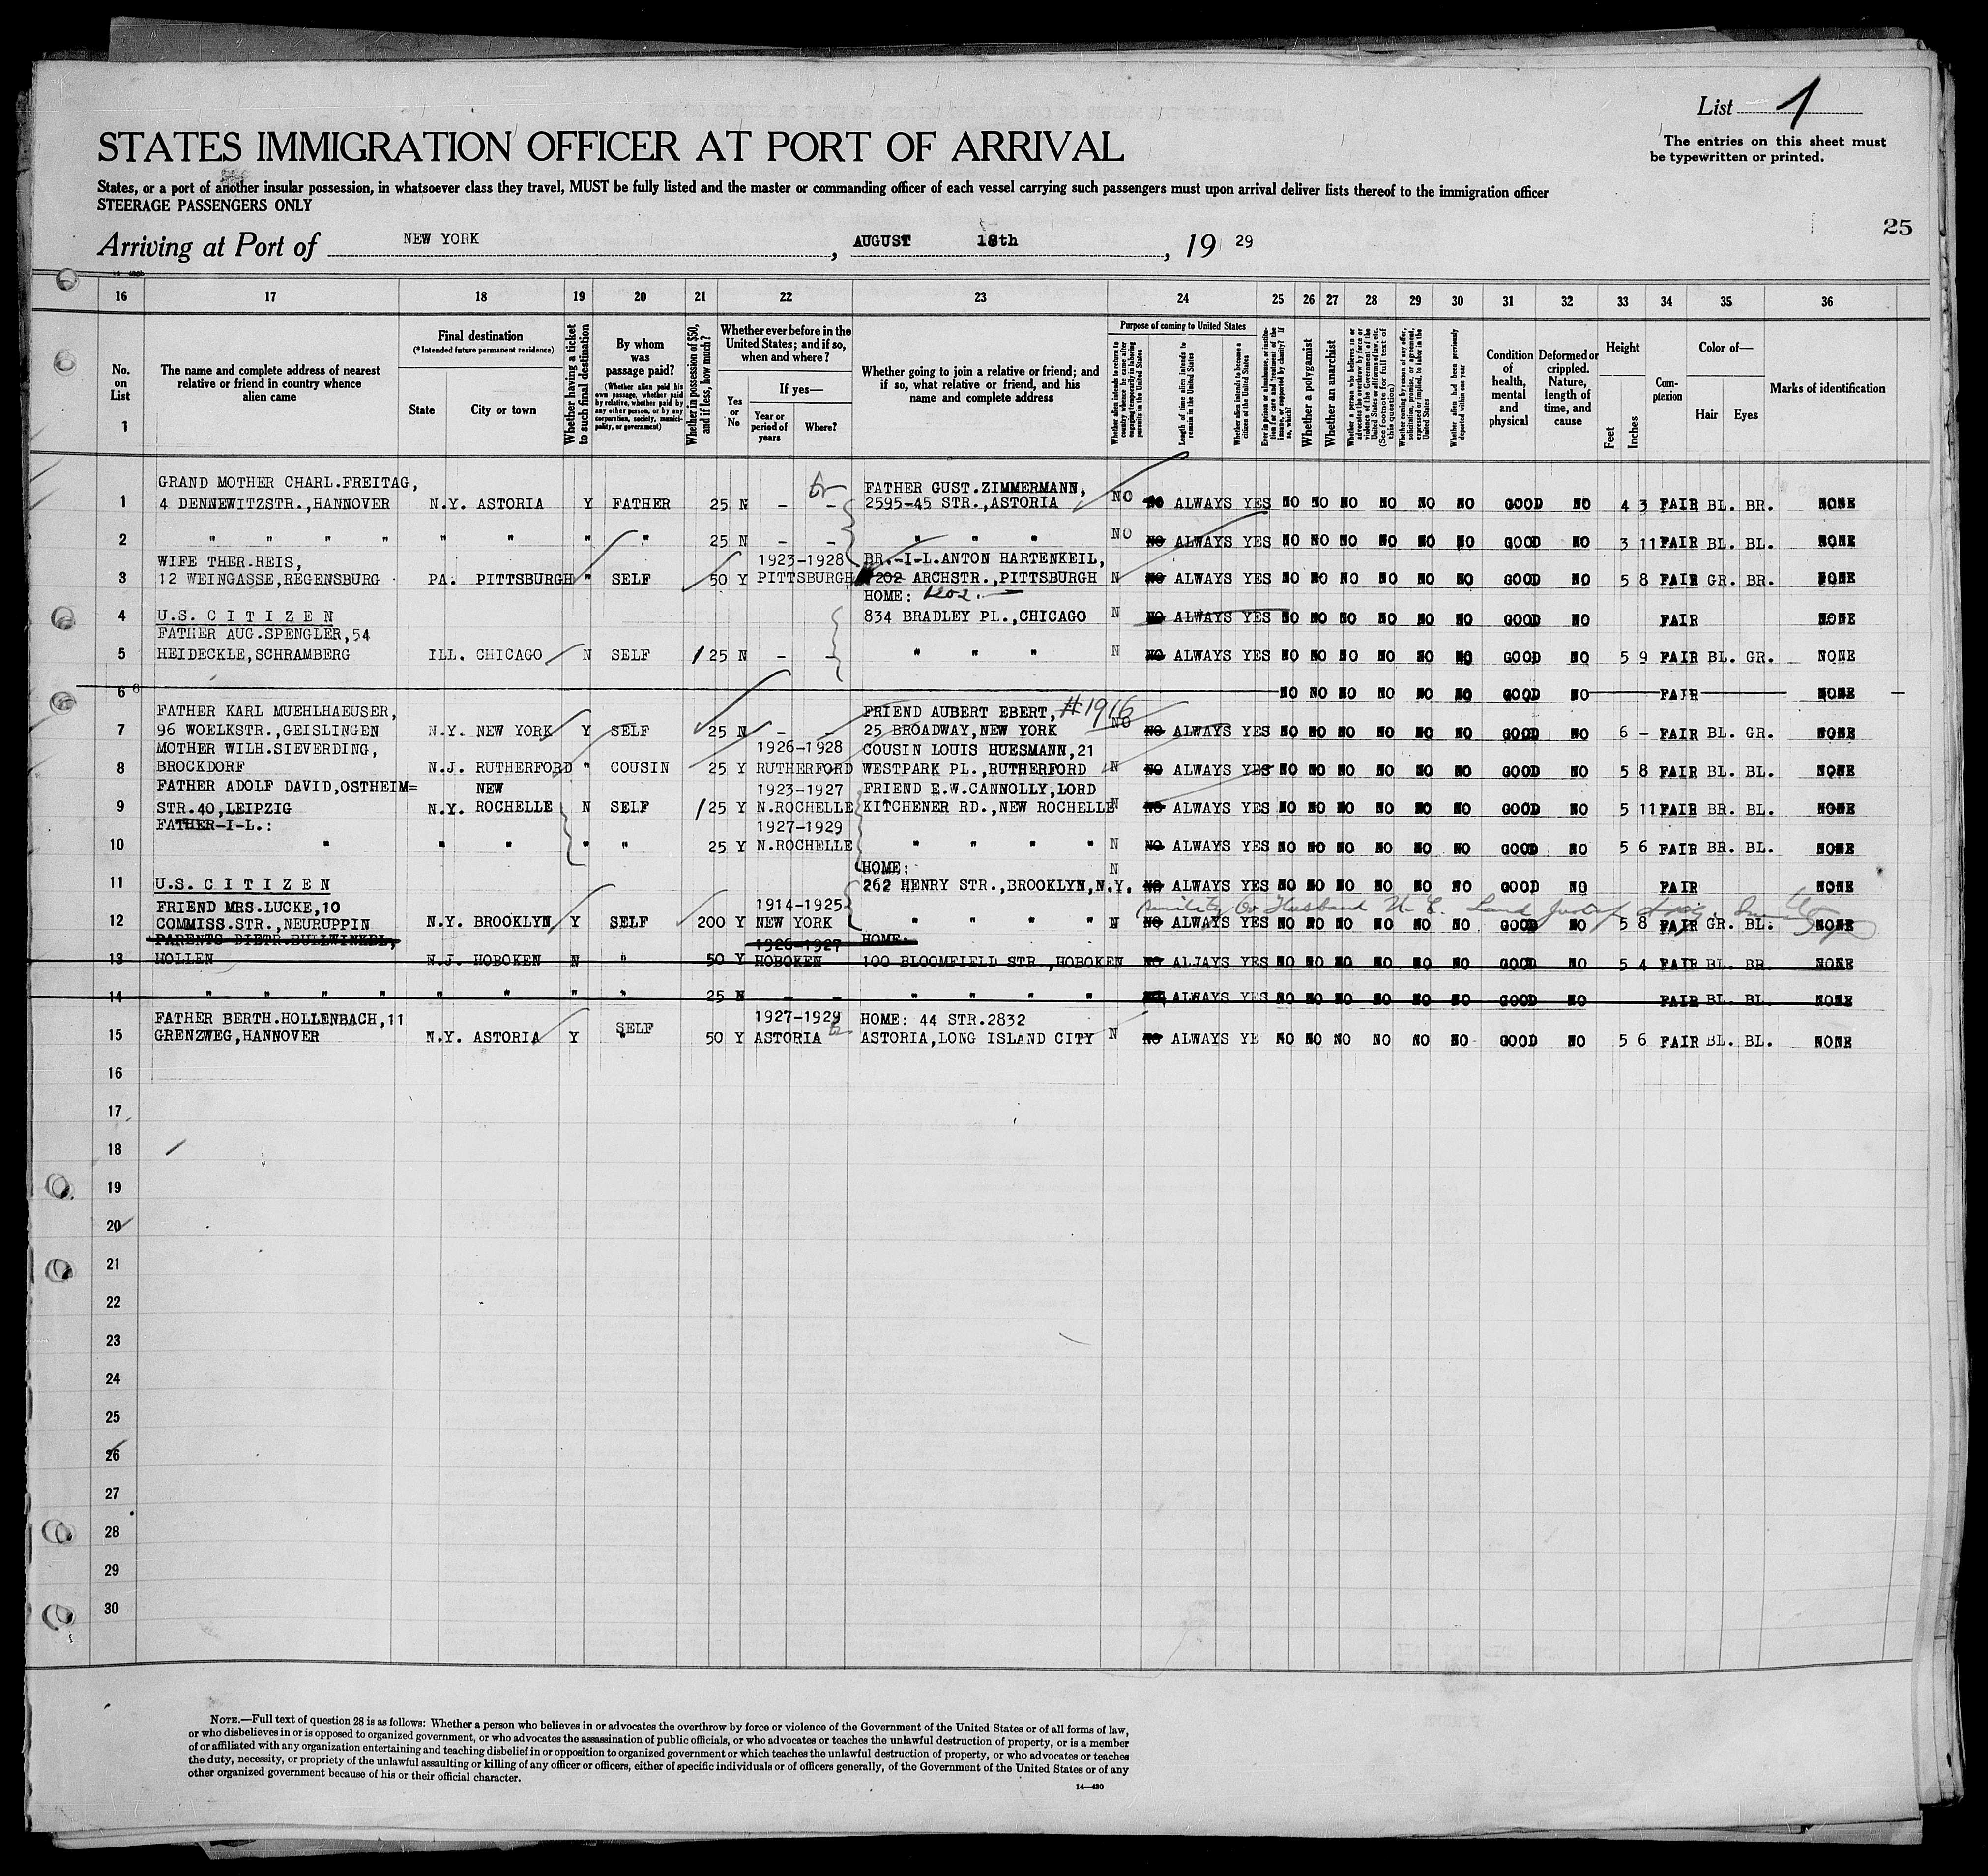 List 1
STATES IMMIGRATION OFFICER AT PORT OF ARRIVAL
The entries on this sheet must
be typewritten or printed.
States, or a port of another insular possession, in whatsoever class they travel, MUST be fully listed and the master or commanding officer of each vessel carrying such passengers must upon arrival deliver lists thereof to the immigration officer
STEERAGE PASSENGERS ONLY
25
Arriving at Port of NEW YORK, AUGUST 18th, 19 29
16 17 18 19 20 21 22 23 24 25 26 27 28 29 30 31 32 33 34 35 36
No. on List
1
The name and complete address of nearest relative or friend in country whence alien came
Final destination
(*Intended future permanent residence)
State
City or town
Whether having a ticket to such final destination
By whom was passage paid?
(Whether alien paid his own passage, whether paid by relative, whether paid by any other person, or by any corporation, society, municipality, or government)
Whether in possession of $50, and if less, how much?
Whether ever before in the United States; and if so, when and where?
Yes or No
If yes—
Year or period of years
Where?
Whether going to join a relative or friend; and if so, what relative or friend, and his name and complete address
Purpose of coming to United States
Whether alien intends to return to country whence he came after engaging temporarily in laboring pursuits in the United States
Length of time alien intends to remain in the United States
Whether alien intends to become a citizen of the United States
Ever in prison or almshouse, or institution for care and treatment of the insane, or supported by charity? If so, which?
Whether a polygamist
Whether an anarchist
Whether a person who believes in or advocates the overthrow by force or violence of the Government of the United States or all forms of law, etc. (See footnote for full text of this question)
Whether coming by reason of any offer, solicitation, promise, or agreement, expressed or implied, to labor in the United States
Whether alien had been previously deported within one year
Condition of health, mental and physical
Deformed or crippled. Nature, length of time, and cause
Height
Feet
Inches
Complexion
Color of—
Hair
Eyes
Marks of identification
GRAND MOTHER CHARL.FREITAG, FATHER GUST.ZIMMERMANN,
1 4 DENNEWITZSTR.,HANNOVER N.Y. ASTORIA Y FATHER 25 N - - 2595-45 STR.,ASTORIA NO NO ALWAYS YES NO NO NO NO NO NO GOOD NO 4 3 FAIR BL. BR. NONE
2 " " " " " " " " 25 N - - " " " NO NO ALWAYS YES NO NO NO NO NO NO GOOD NO 3 11 FAIR BL. BL. NONE
WIFE THER.REIS, 1923-1928 BR.-I-L.ANTON HARTENKEIL,
3 12 WEINGASSE,REGENSBURG PA. PITTSBURGH " SELF 50 Y PITTSBURGH 1202 ARCHSTR.,PITTSBURGH N NO ALWAYS YES NO NO NO NO NO NO GOOD NO 5 8 FAIR GR. BR. NONE
HOME:
4 U.S. C I T I Z E N 834 BRADLEY PL.,CHICAGO N NO ALWAYS YES NO NO NO NO NO NO GOOD NO FAIR NONE
FATHER AUG.SPENGLER,54
5 HEIDECKLE,SCHRAMBERG ILL. CHICAGO N SELF 25 N - - " " " N NO ALWAYS YES NO NO NO NO NO NO GOOD NO 5 9 FAIR BL. GR. NONE
6 6 NO NO NO NO NO NO GOOD NO FAIR NONE
FATHER KARL MUEHLHAEUSER, FRIEND AUBERT EBERT, #1916
7 96 WOELKSTR.,GEISLINGEN N.Y. NEW YORK Y SELF 25 N - - 25 BROADWAY,NEW YORK NO NO ALWAYS YES NO NO NO NO NO NO GOOD NO 6 - FAIR BL. GR. NONE
MOTHER WILH.SIEVERDING, 1926-1928 COUSIN LOUIS HUESMANN,21
8 BROCKDORF N.J. RUTHERFORD " COUSIN 25 Y RUTHERFORD WESTPARK PL.,RUTHERFORD N NO ALWAYS YES NO NO NO NO NO NO GOOD NO 5 8 FAIR BL. BL. NONE
FATHER ADOLF DAVID,OSTHEIM= NEW 1923-1927 FRIEND E.W.CANNOLLY,LORD
9 STR.40,LEIPZIG N.Y. ROCHELLE N SELF 25 Y N.ROCHELLE KITCHENER RD.,NEW ROCHELLE N NO ALWAYS YES NO NO NO NO NO NO GOOD NO 5 11 FAIR BR. BL. NONE
FATHER-I-L.: 1927-1929
10 " " " " " 25 Y N.ROCHELLE " " " " N NO ALWAYS YES NO NO NO NO NO NO GOOD NO 5 6 FAIR BR. BL. NONE
HOME: N
11 U.S. C I T I Z E N 262 HENRY STR.,BROOKLYN,N.Y. NO ALWAYS YES NO NO NO NO NO NO GOOD NO FAIR NONE
FRIEND MRS.LUCKE,10 1914-1925 Husband
12 COMMISS.STR.,NEURUPPIN N.Y. BROOKLYN Y SELF 200 Y NEW YORK " " " " N NO ALWAYS YES NO NO NO NO NO NO GOOD NO 5 8 FAIR GR. BL. NONE
PARENTS DIETR.BULLWINKEL, 1926-1927 HOME:
13 HOLLEN N.J. HOBOKEN N " 50 Y HOBOKEN 100 BLOOMFIELD STR.,HOBOKEN NO ALWAYS YES NO NO NO NO NO NO GOOD NO 5 4 FAIR BL. BR. NONE
14 " " " " " " " " 25 N - - " " " " NO ALWAYS YES NO NO NO NO NO NO GOOD NO FAIR BL. BL. NONE
FATHER BERTH.HOLLENBACH,11 SELF 1927-1929 HOME: 44 STR.2832
15 GRENZWEG,HANNOVER N.Y. ASTORIA Y " 50 Y ASTORIA ASTORIA,LONG ISLAND CITY N NO ALWAYS YE NO NO NO NO NO NO GOOD NO 5 6 FAIR BL. BL. NONE
16
17
18
19
20
21
22
23
24
25
26
27
28
29
30
NOTE.—Full text of question 28 is as follows: Whether a person who believes in or advocates the overthrow by force or violence of the Government of the United States or of all forms of law,
or who disbelieves in or is opposed to organized government, or who advocates the assassination of public officials, or who advocates or teaches the unlawful destruction of property, or is a member
of or affiliated with any organization entertaining and teaching disbelief in or opposition to organized government or which teaches the unlawful destruction of property, or who advocates or teaches
the duty, necessity, or propriety of the unlawful assaulting or killing of any officer or officers, either of specific individuals or of officers generally, of the Government of the United States or of any
other organized government because of his or their official character.
14—430